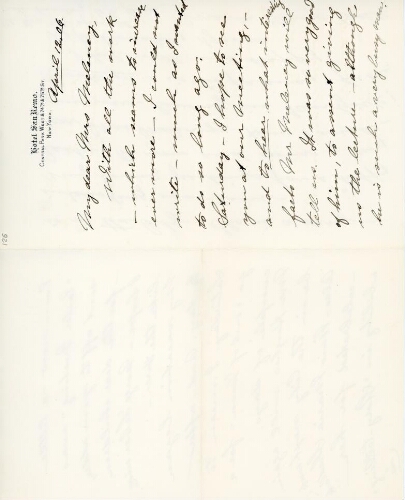 Hotel San Remo.
Central Park West & 74th & 75th St.
New York.
April 12. 06.
My dear Mrs Meleney,
With all the work
- which seems to increase
ever more - I could not
write - much as I wanted
to do so long ago.
Saturday - I hope to see
you at our Meeting, -
and to hear what interesting
facts Mr Meleney will
tell us. It was so very good
of him, to assent giving
us the lecture - although
he is such a very busy man.
126